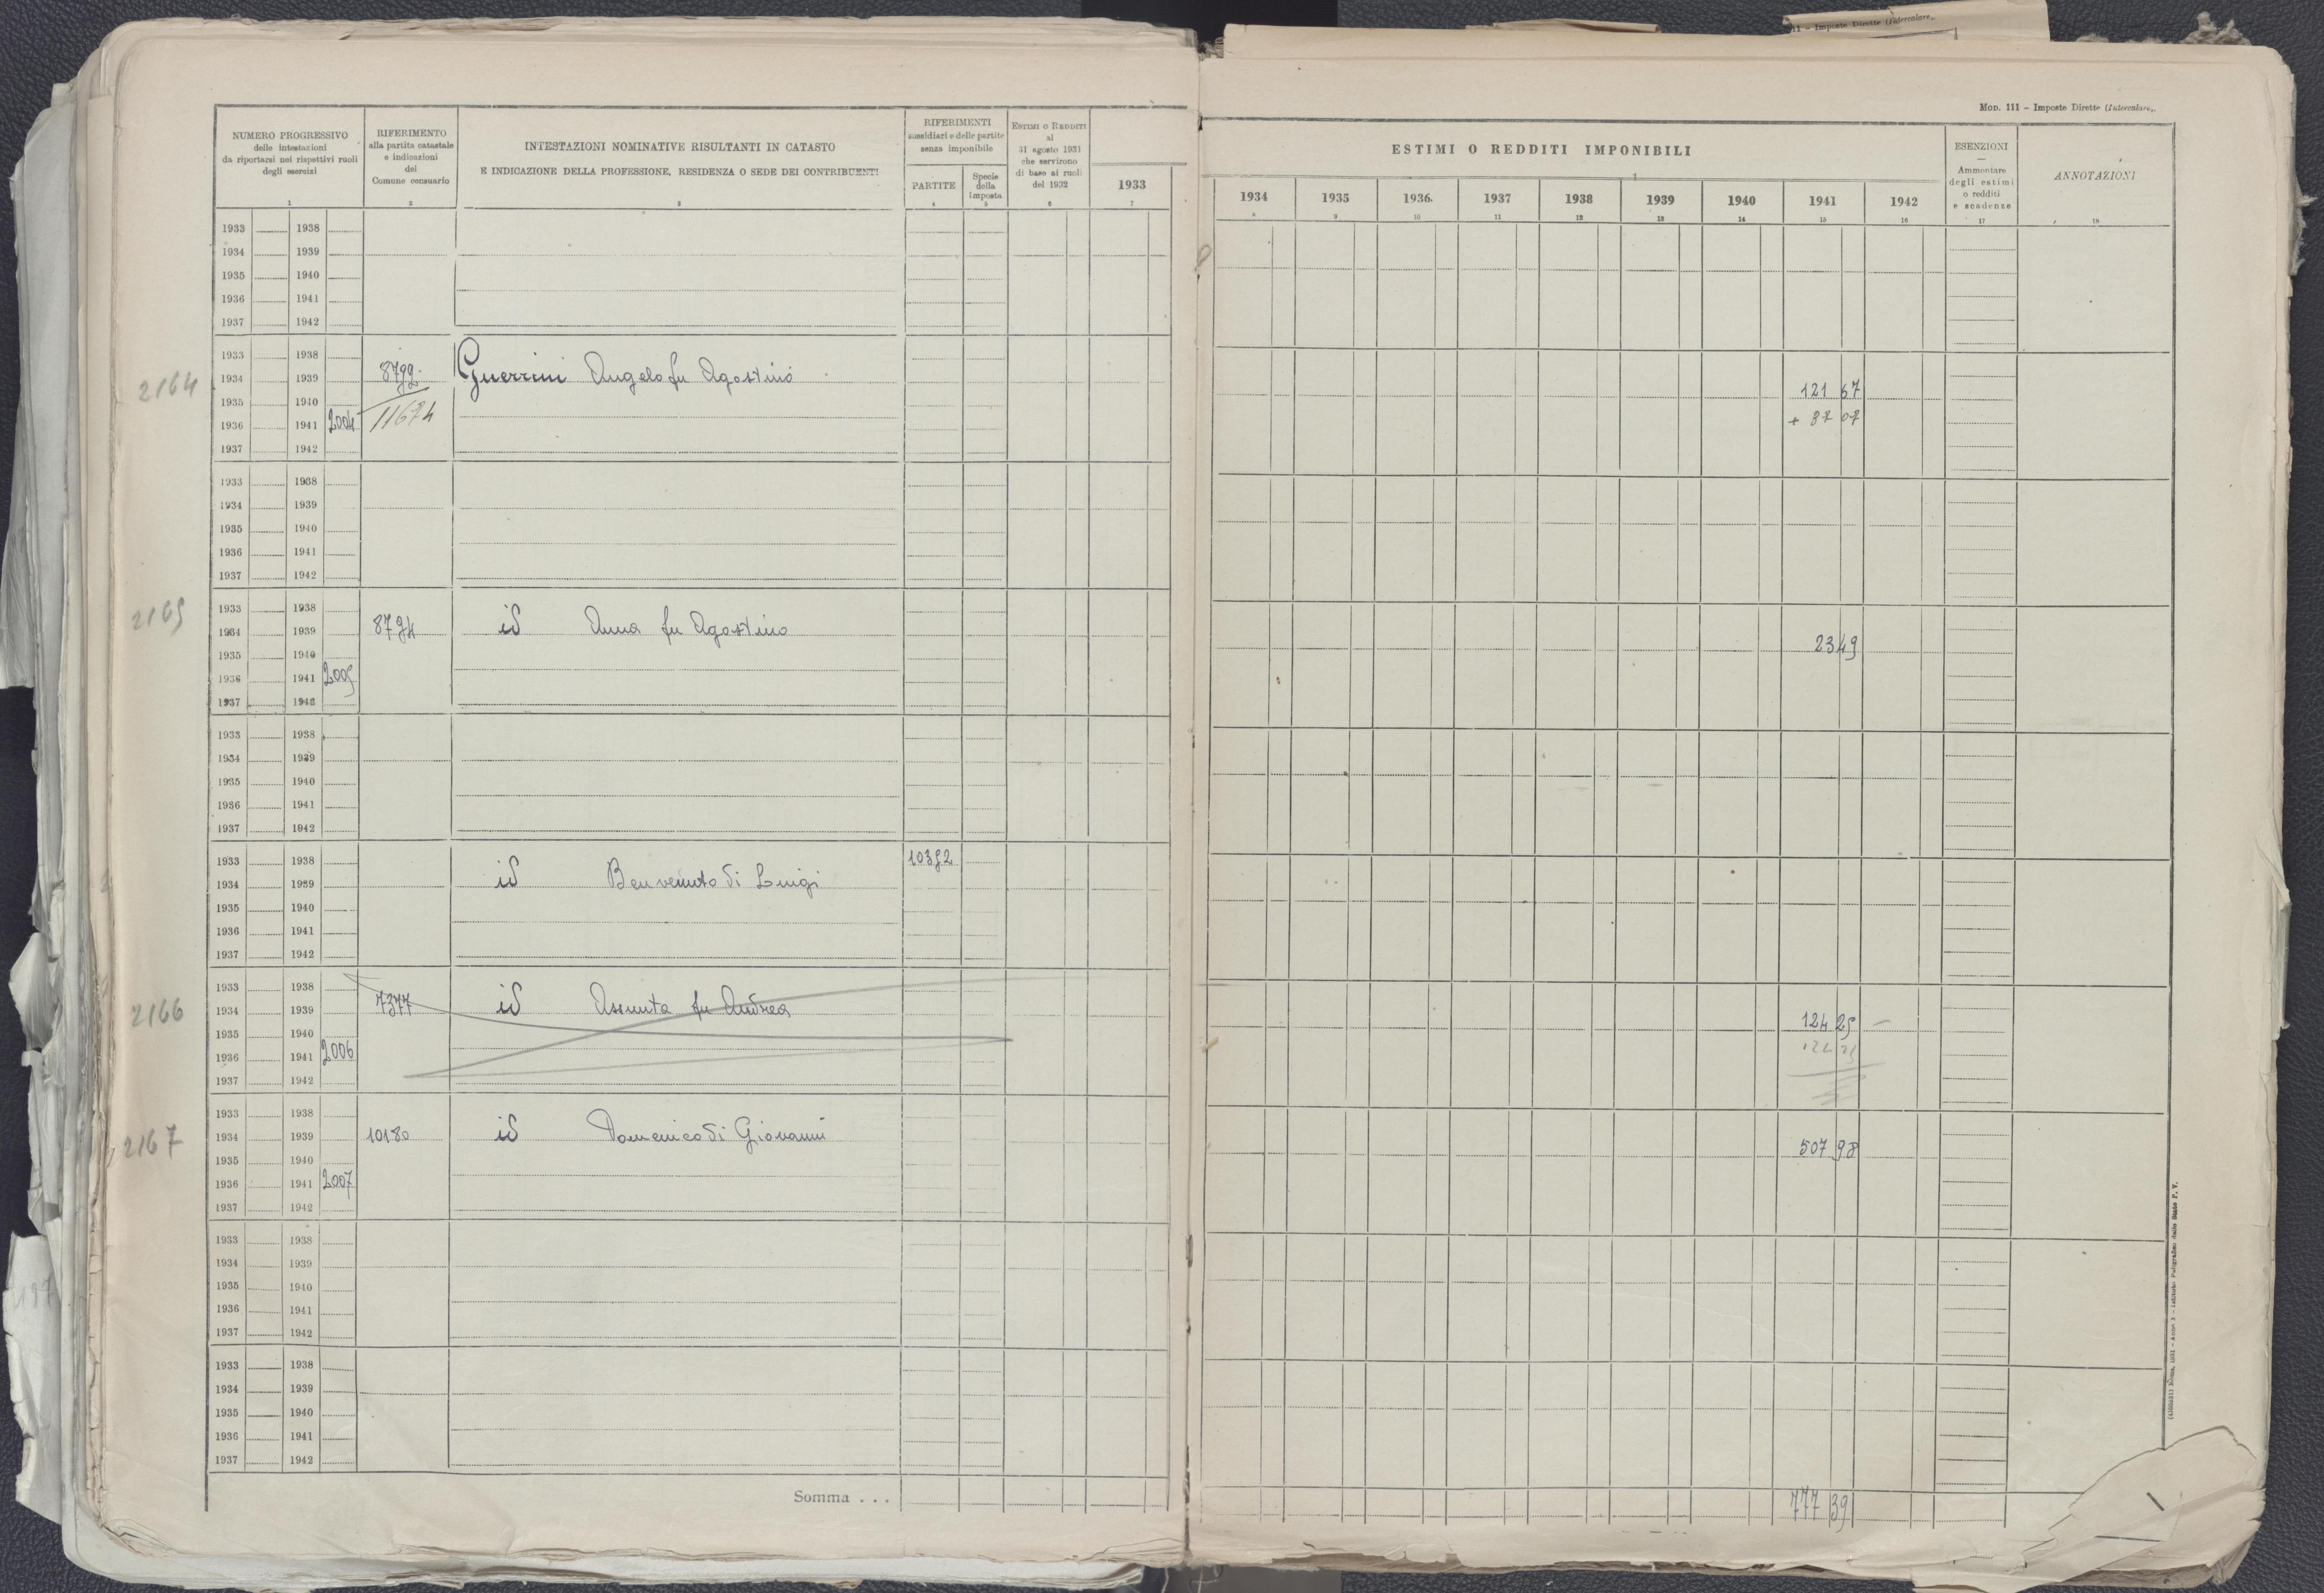 III - Imposte Dirette (Intercalare,.
Mod. 111 - Imposte Dirette (Intercalare,.
NUMERO PROGRESSIVO
delle intestazioni
da riportarsi nei rispettivi ruoli
degli esercizi
1
RIFERIMENTO
alla partita catastale
e indicazioni
del
Comune censuario
2
INTESTAZIONI NOMINATIVE RISULTANTI IN CATASTO
E INDICAZIONE DELLA PROFESSIONE, RESIDENZA O SEDE DEI CONTRIBUENTI
3
RIFERIMENTI
sussidiari e delle partite
senza imponibile
PARTITE
4
Specie
della
imposta
5
Estimi o Redditi
al
31 agosto 1931
che servirono
di base ai ruoli
del 1932
6
1933
7
ESTIMI O REDDITI IMPONIBILI
1934 1935 1936. 1937 1938 1939 1940 1941 1942
8 9 10 11 12 13 14 15 16
ESENZIONI
—
Ammontare
degli estimi
o redditi
e scadenze
17
ANNOTAZIONI
18
1933 1938
1934 1939
1935 1940
1936 1941
1937 1942
1933 1938
2164 1934 1939 8792 Guerrini Angelo fu Agostino 121 67
1935 1940
1936 1941 2004 11674 + 87 07
1937 1942
1933 1938
1934 1939
1935 1940
1936 1941
1937 1942
1933 1938
2165 1934 1939 8794 id Anna fu Agostino 23 49
1935 1940
1936 1941 2005
1937 1942
1933 1938
1934 1939
1935 1940
1936 1941
1937 1942
1933 1938 10392
1934 1939 id Benvenuto di Luigi
1935 1940
1936 1941
1937 1942
1933 1938
2166 1934 1939 7377 id Assunta fu Andrea 124 25 –
1935 1940
1936 1941 2006
1937 1942
1933 1938
2167 1934 1939 10180 id Domenico di Giovanni 507 98
1935 1940
1936 1941 2007
1937 1942
1933 1938
1934 1939
1935 1940
1936 1941
1937 1942
1933 1938
1934 1939
1935 1940
1936 1941
1937 1942
Somma . . . 777 39